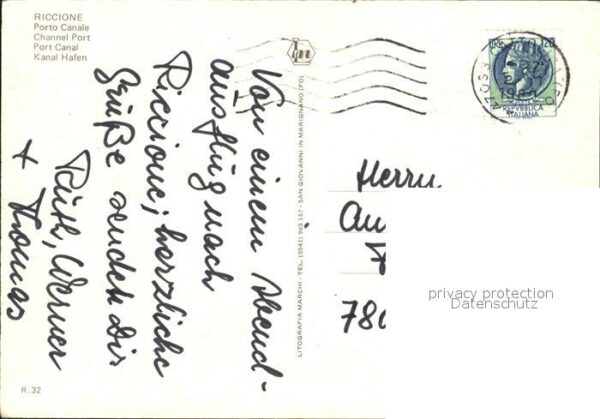 RICCIONE
Porto Canale
Channel Port
Port Canal
Kanal Hafen
Von einem Abend-
ausflug nach
Riccione, herzliche
Grüße senden Dir
Ruth, Werner
+ Thomas
LITOGRAFIA MARCHI - TEL. (0541) 965 157 - SAN GIOVANNI IN MARIGNANO (FO)
120
REPVBBLICA
ITALIANA
Herrn
780
privacy protection
Datenschutz
R. 32